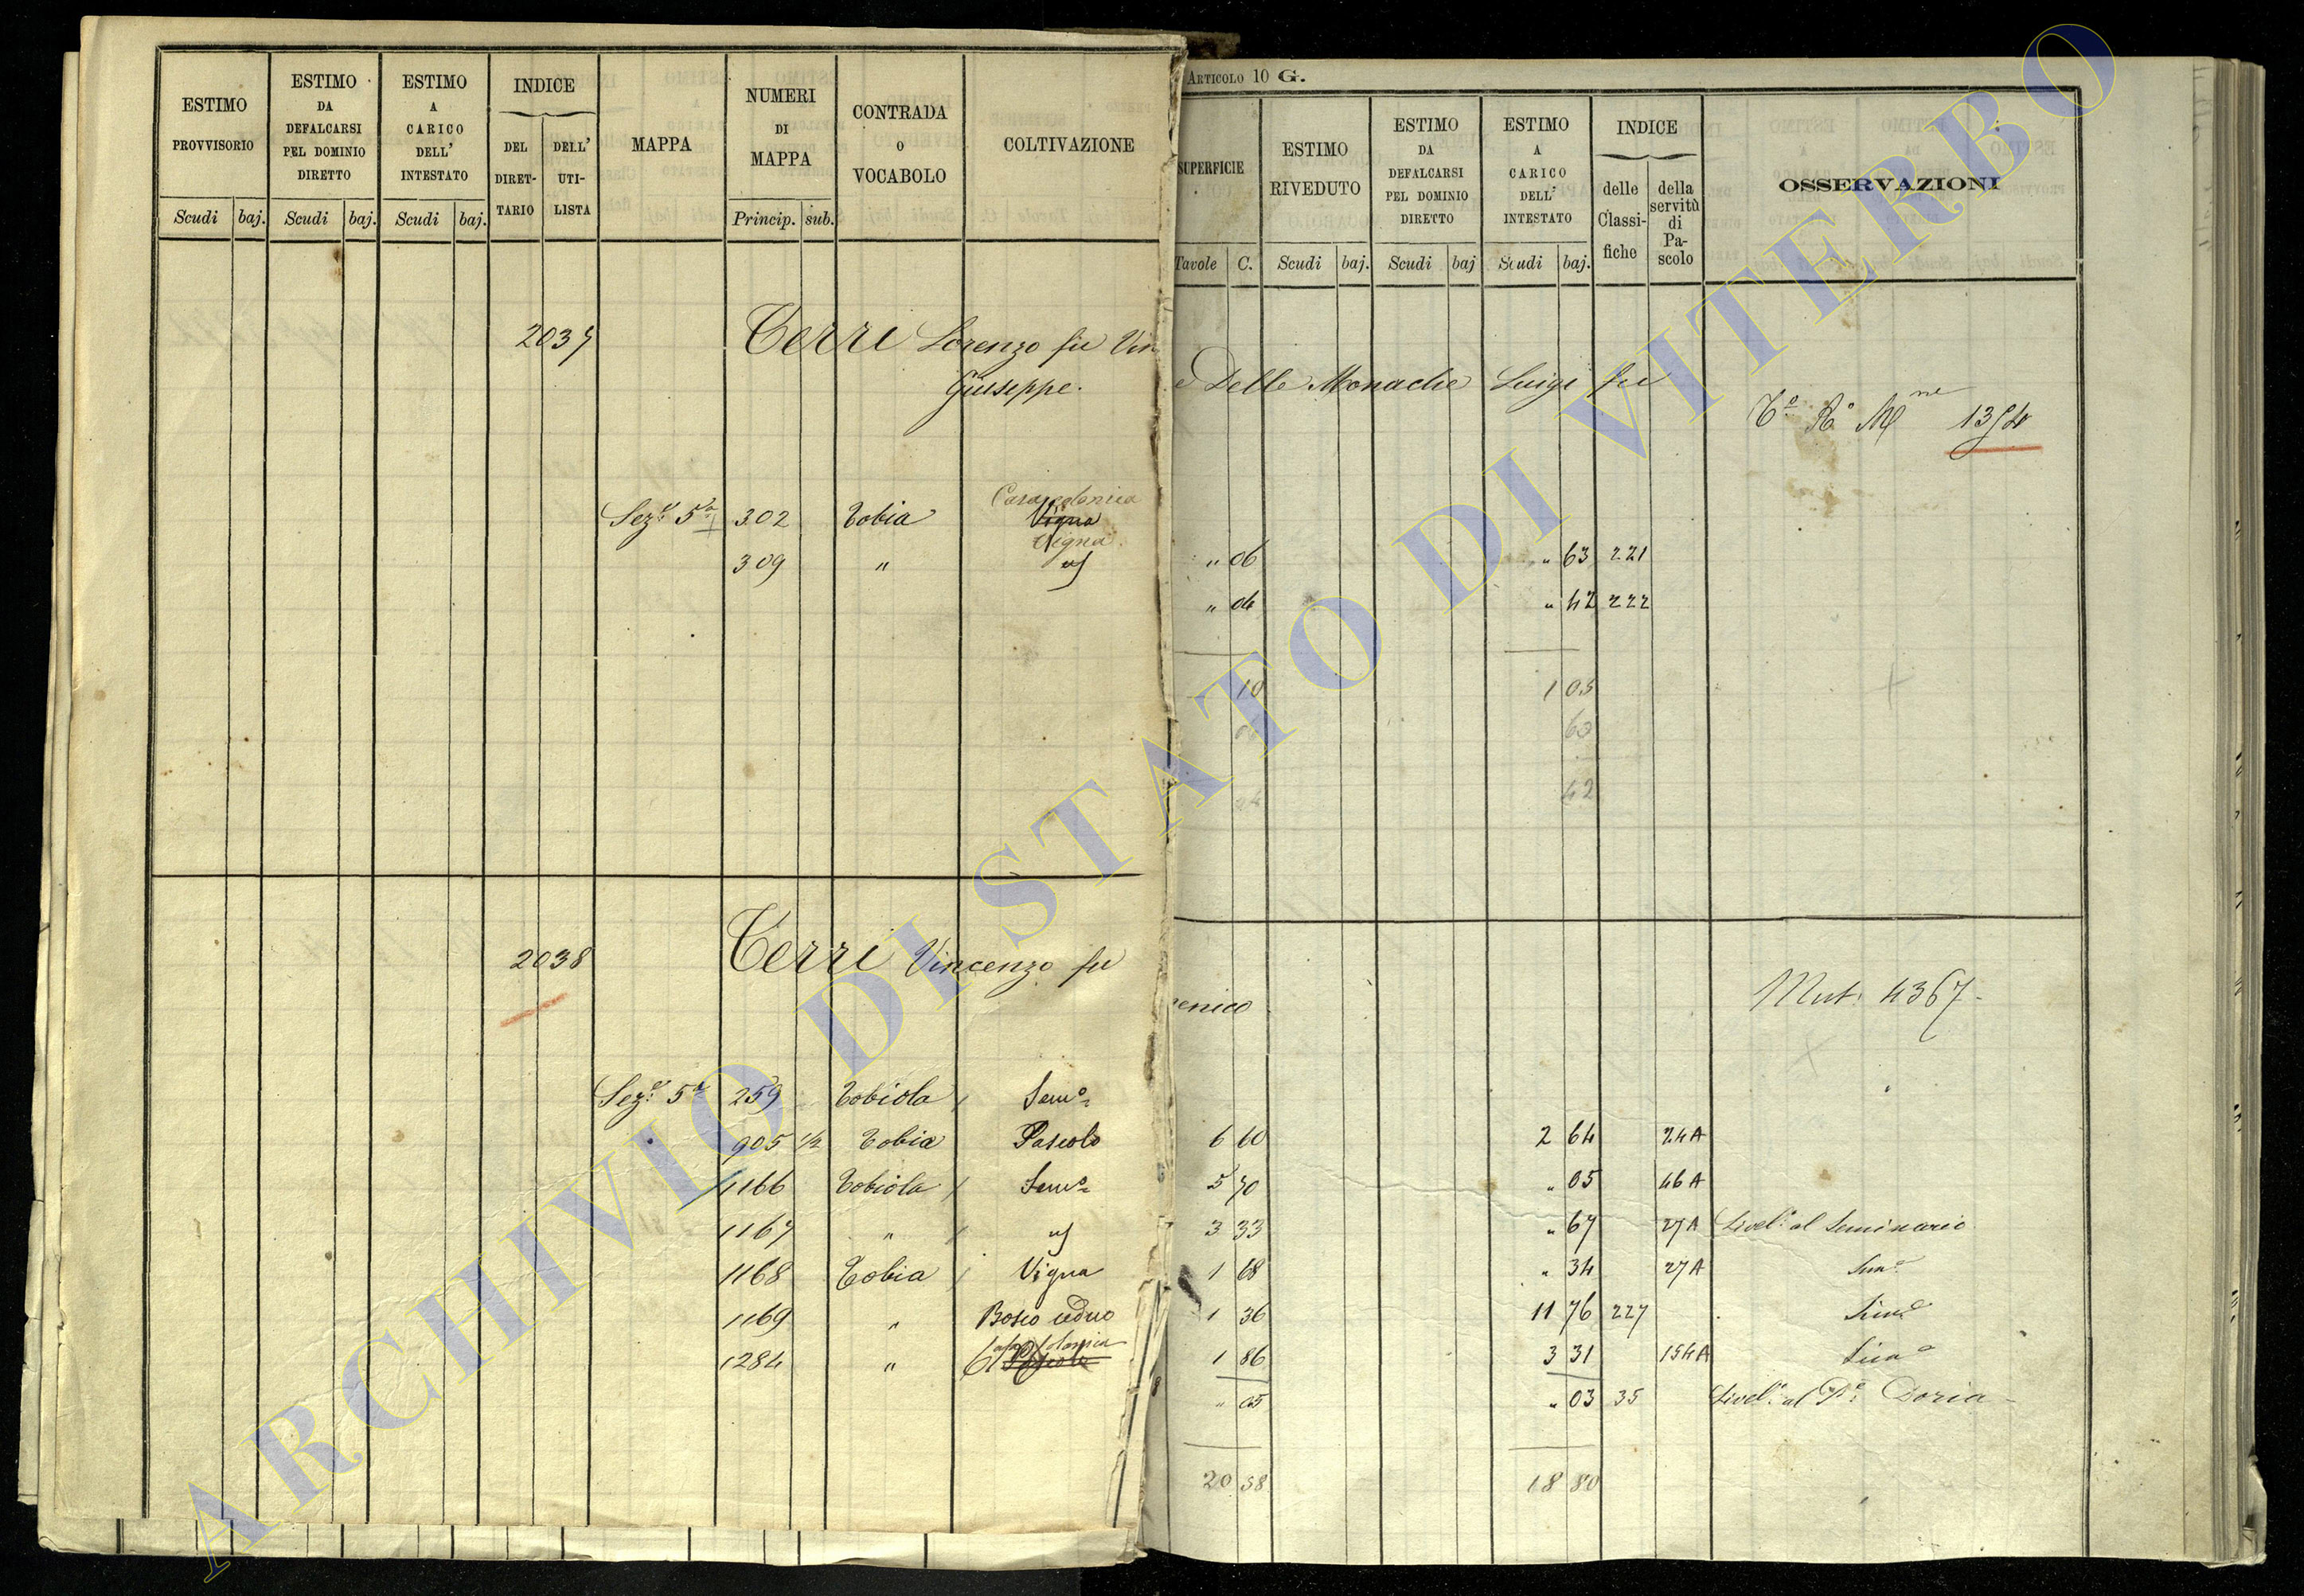 ESTIMO PROVVISORIO
Scudi baj.
ESTIMO DA DEFALCARSI PEL DOMINIO DIRETTO
Scudi baj.
ESTIMO A CARICO DELL' INTESTATO
Scudi baj.
INDICE
DEL DIRET-TARIO
DELL' UTI-LISTA
MAPPA
NUMERI DI MAPPA
Princip. sub.
CONTRADA O VOCABOLO
COLTIVAZIONE
2037 Terri Lorenzo fu Vin
Giuseppe.
Casa colonica
Sez.e 5a 302 Tobia Vigna
Vigna
309 "
2038 Terri Vincenzo fu
Sez.e 5a 259 Tobiola / Sem.o
905 1/2 Tobia Pascolo
1166 Tobiola / Sem.o
1167 " /
1168 Tobia / Vigna
1169 " Bosco ceduo
1284 " Casa Colonica Pascolo
ARTICOLO 10 G.
SUPERFICIE
Tavole C.
ESTIMO RIVEDUTO
Scudi baj.
ESTIMO DA DEFALCARSI PEL DOMINIO DIRETTO
Scudi baj
ESTIMO A CARICO DELL' INTESTATO
Scudi baj.
INDICE
delle Classi-fiche
della servitù di Pa-scolo
OSSERVAZIONI
e Delle Monache Luigi fu
T.o R.o M.ne 1354
" 06 " 63 221
" 04 " 42 222
10 1 05
06 63
04 42
enico
Mut. 4367
6 60 2 64 24A
5 70 " 05 46A
3 33 " 67 27A Livel.o al Seminario
1 68 " 34 27A Sim.e
1 36 11 76 227 Sim.e
1 86 3 31 154A Sim.e
" 05 " 03 35 Livel.o al P.e Doria
20 58 18 80
ARCHIVIO DI STATO DI VITERBO